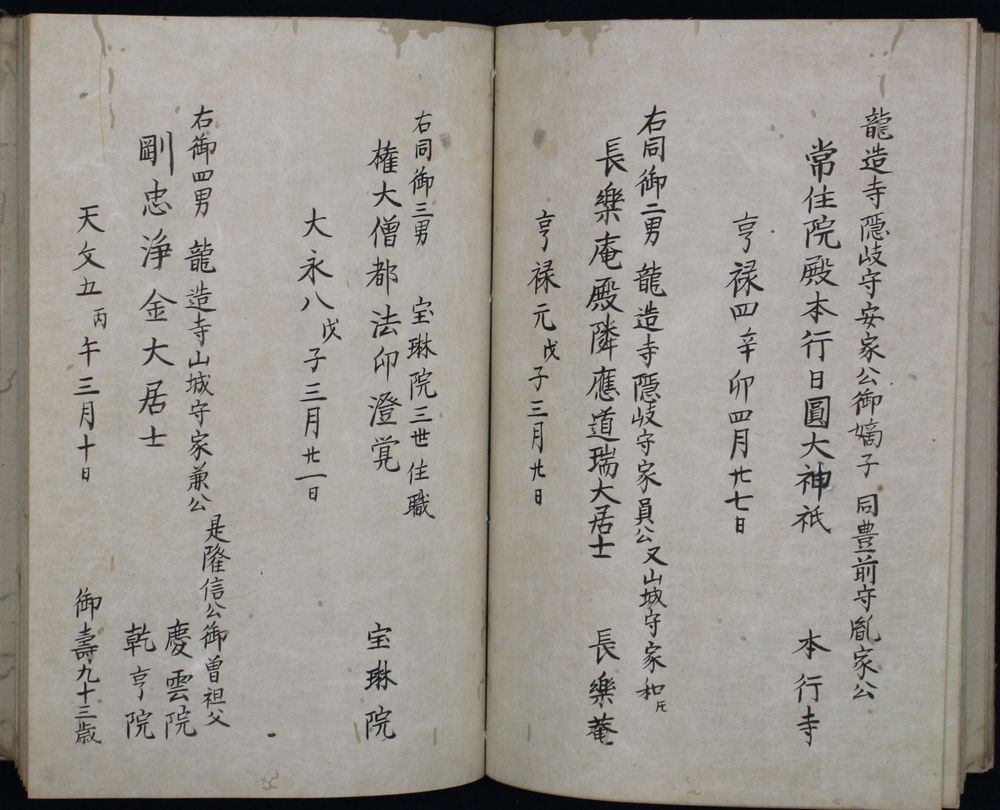 龍造寺隠岐守安家公御嫡子 同豊前守胤家公
常住院殿本行日圓大神祇 本行寺
亨禄四辛卯四月廿七日
右同御二男 龍造寺隠岐守家員公又山城守家和氏
長樂庵殿隣應道瑞大居士 長樂菴
亨禄元戊子三月廿日
右同御三男 宝琳院三世住職
権大僧都法印澄覚 宝琳院
大永八戊子三月廿一日
右御四男 龍造寺山城守家兼公是隆信公御曽祖父
剛忠浄金大居士 慶雲院
乾亨院
天文五丙午三月十日 御壽九十三歳